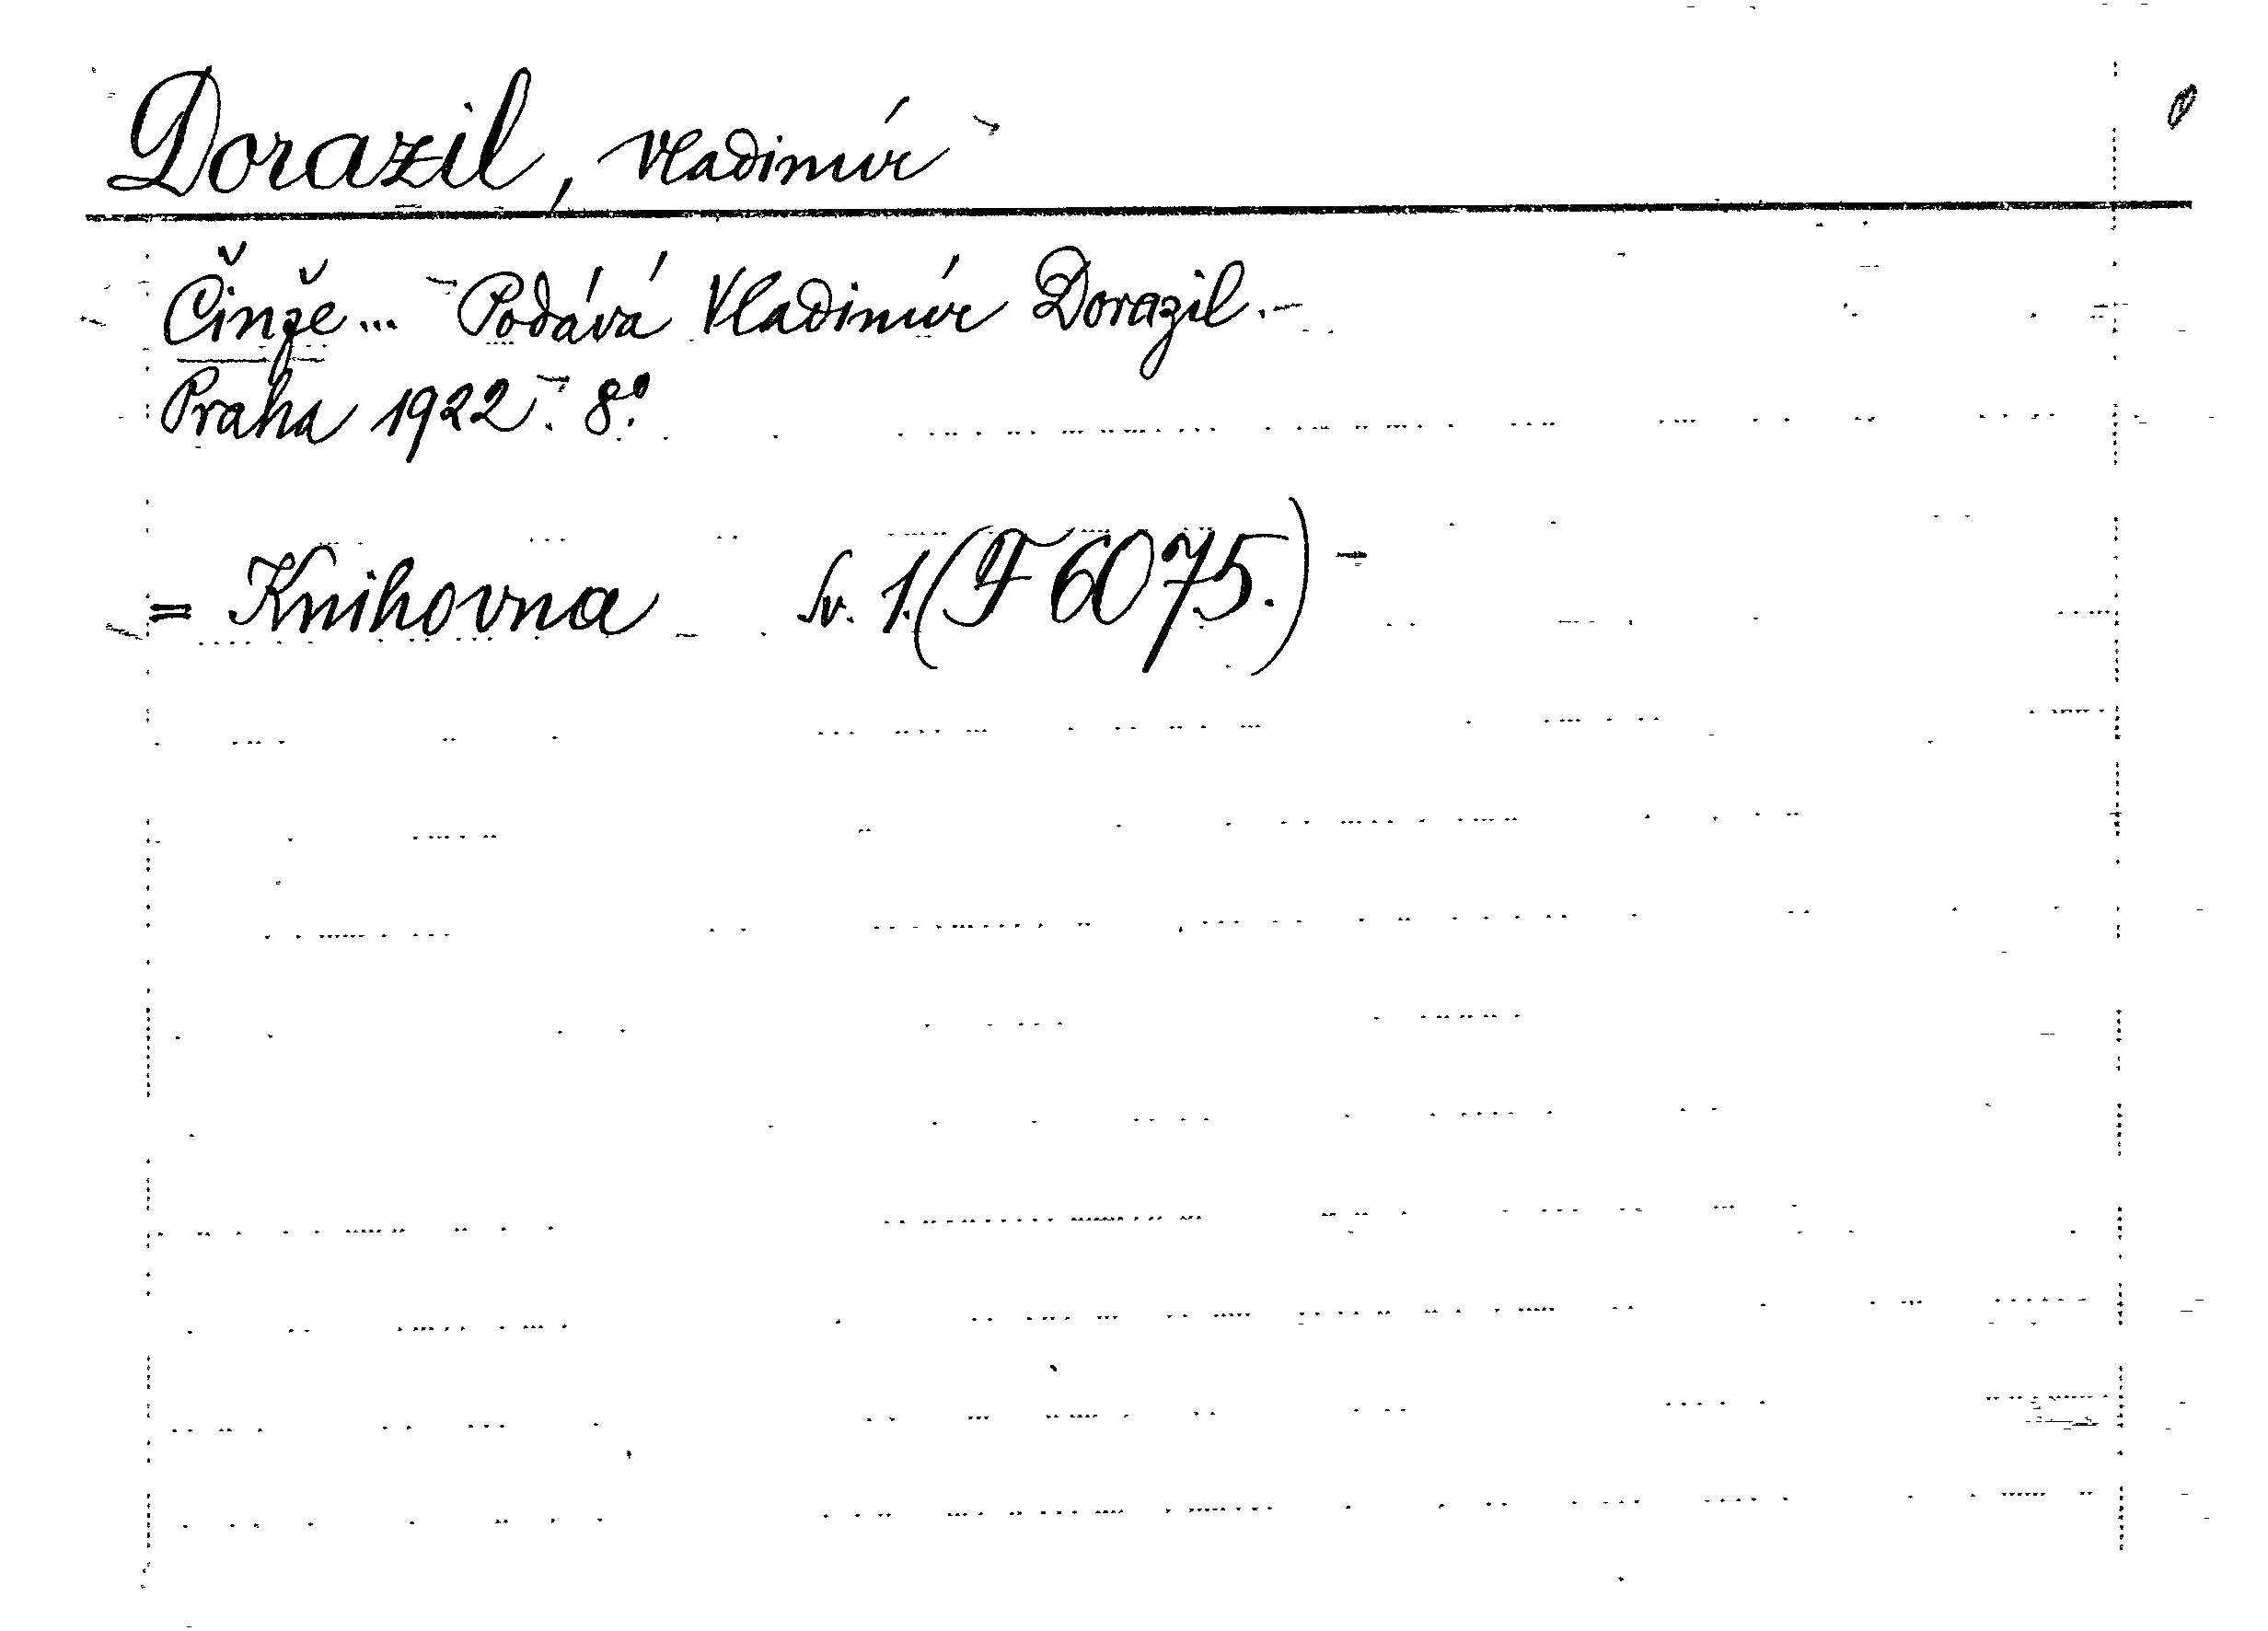 Dorazil, Vladimír
Činže... Podává Vladimír Dorazil.
Praha 1922. 8°.
= Knihovna Sv. 1. (F 6075.)